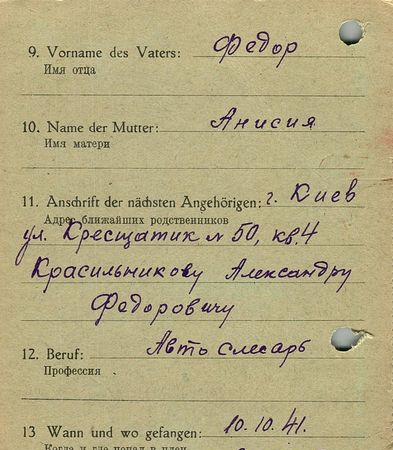 9. Vorname des Vaters: Федор
Имя отца
10. Name der Mutter: Анисия
Имя матери
11. Anschrift der nächsten Angehörigen: г. Киев
Адрес ближайших родственников
ул. Кресщатик № 50, кв. 4
Красильникову Александру
Федоровичу
12. Beruf: Авто слесарь
Профессия
13 Wann und wo gefangen: 10.10.41.
Когда и где попал в плен